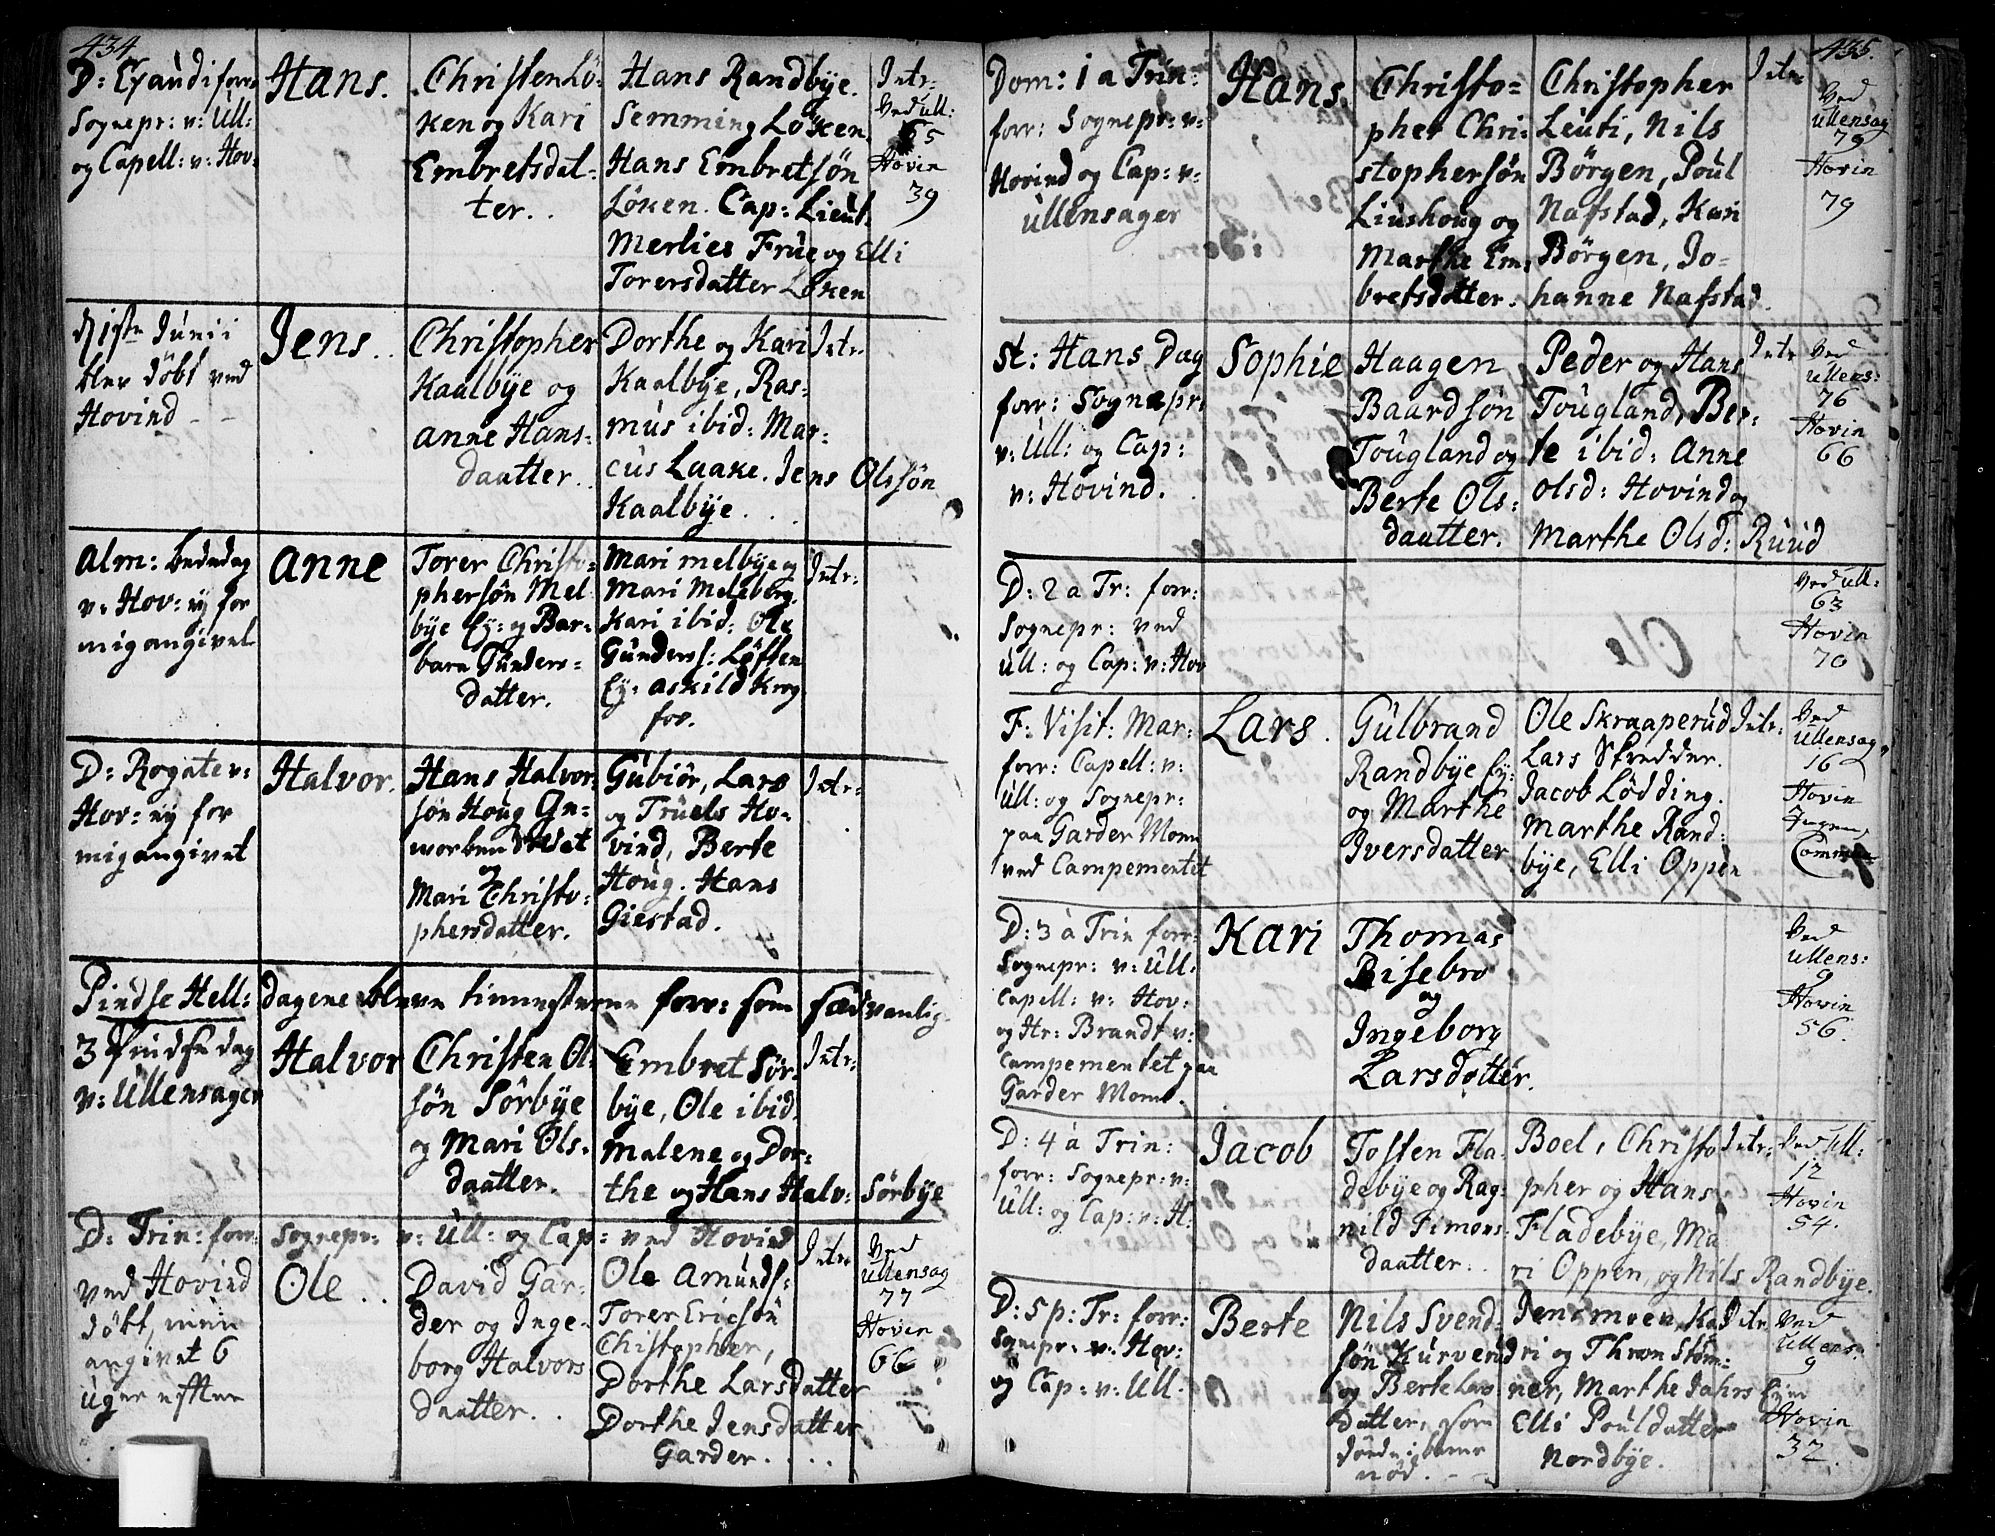 434
D: Exaudi forr:
Sognepr: v: Ull:
og Capell: v: Hov:
Hans.
Christen Lö=
ken og Kari
Embretsdat=
ter. .
Hans Randbÿe.
Semming Löken
Hans Embretsön
Löken. Cap: Lieut:
Merlies Frue og Elli
Torersdatter Löken
Intr:
Ved ull:
65
Hovin
39
Junii
blev döbt ved
Hovind - -
Jens. .
Christopher
Kaalbÿe og
anne Hans=
daatter. .
Dorthe og Kari
Kaalbÿe, Ras=
mus ibid: Mar=
cus Laake. Jens Olssön
Kaalbÿe . . .
Intr.
Alm: bededag
v: Hov: eÿ for
mig angivet
Anne
Torer Christo=
phersön Mel
bÿe Eÿ: og Bar=
bara Gunders=
datter.
Mari melbÿe og
Mari Melebÿe,
Kari ibid: Ole
Gunders: Löften
Eÿ: Askild Krog
for.
Intr:
D: Rogate v:
Hov: eÿ for
mig angivet
Halvor.
Hans Halvor=
sön Houg
og
Mari Christo=
phersdatter.
Gubiör, Lars
og Truels Ho=
vind, Berte
Houg. Hans
Giestad.
Intr:
Pindse Hell: dagene bleve tienesterne forr: som sædvanlig.
3 Pindse dag
v: Ullensager
Halvor
Christen Ol=
sön Sörbÿe
og Mari Ols=
daatter.
Embret Sör=
bÿe, Ole ibid
Malene og Dor=
the og Hans Halv: Sörbÿe
Intr:
D: Trin: forr: Sognepr: v: Ull: og Cap: ved Hovind
ved Hovind
döbt, mig
angivet 6
uger efter
Ole . .
David Gar=
der og Inge=
borg Halvors
daatter. .
Ole Amunds:
Torer Ericsön
Christopher,
Dorthe Larsdatter
Dorthe Jensdatter
Garder. . . .
Intr.
Ved
Ullensag
77
Hovin
66
435.
Dom: 1 a Trin:
forr: Sognepr: v:
Hovind og Cap: v:
Ullensager
Hans.
Christo=
pher Chri=
stophersön
Liushoug og
Marthe Em=
bretsdatter.
Christopher
Leuti, Nils
Börgen, Poul
Nafstad, Kari
Börgen, Jo=
hanne Nafstad
Intr
Ved
Ullensag
79
Hovin
79
St: Hans Dag
forr: Sognepr:
v: Ull: og Cap:
v: Hovind.
Sophie
Haagen
Baardsön
Tougland og
Berte Ols=
daatter.
Peder og Hans
Tougland, Ber=
te ibid: Anne
Olsd: Hovind og
Marthe Olsd: Ruud
Intr
Ved
Ullens:
76
Hovin
66
D: 2 a Tr: forr:
Sognepr: ved
Ull: og Cap: v: Hov
Ved Ull:
63
Hovin
70
F: Visit: Mar:
forr: Capell: v:
Ull: og Sognepr:
paa Garder Moen
ved Campementet
Lars.
Gulbrand
Randbÿe Eÿ:
og Marthe
Iversdatter
Ole Skraaperud
Lars Skredder.
Jacob Lödding.
Marthe Rand=
bÿe, Elli Oppen
Intr:
Ved
Ullensag
16
Hovin
Ingen
D: 3 à Trin forr:
Sognepr: v: Ull:
Capell: v: Hov:
og Hr: Brandt v:
Campementet paa
Garder Moen.
Kari
Thomas
Bisebro
og
Ingeborg
Larsdotter.
Ved
Ullens:
9
Hovin
56.
D: 4 à Trin:
forr: Sognepr: v:
Ull: og Cap: v: H.
Jacob
Tosten Fla=
debÿe og Rag=
nild Simons=
daatter. .
Boel, Christo
pher og Hans
Fladebÿe, Ma
ri Oppen, og Nils Randbÿe.
Intr:
Ved Ull:
12
Hovin
54.
D: 5 p: Tr: forr:
Sognepr: v: Hov:
og Cap: v: Ull.
Berte
Nils Svend=
sön Kurverud
og Berte Lars
datter, som
döde i barne
nöd. - -
Jens moen, Ka
ri og Thron Stöm=
ner, Marthe Jahrs Eÿer
Elli Poulsdatter
Nordbÿe.
Intr.
Ved
Ullens:
9
Hovin
32.